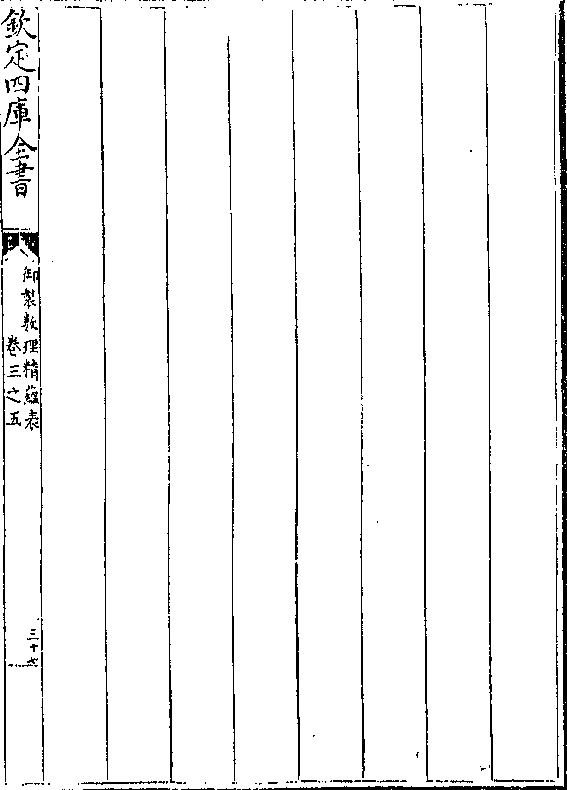 欽定四庫全書
御製數理精蘊表
卷三之五